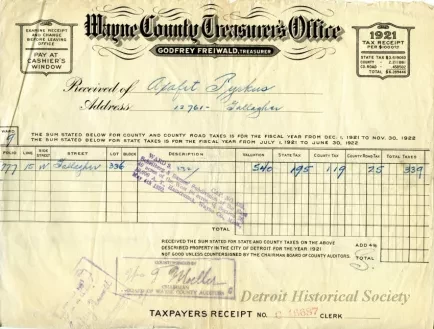 EXAMINE RECEIPT
AND CHANGE
BEFORE LEAVING
OFFICE
PAY AT
CASHIER'S
WINDOW
Wayne County Treasurer's Office
GODFREY FREIWALD, TREASURER
1921
TAX RECEIPT
PER $1000.00
STATE TAX
COUNTY
CO. ROAD
Received of
Address 12761- Gallagher
WARD 9
THE SUM STATED BELOW FOR COUNTY AND COUNTY ROAD TAXES IS FOR THE FISCAL YEAR FROM DEC. 1, 1921 TO NOV. 30, 1922
THE SUM STATED BELOW FOR STATE TAXES IS FOR THE FISCAL YEAR FROM JULY 1, 1921 TO JUNE 30, 1922
FOLIO LINE SIDE STREET STREET LOT BLOCK DESCRIPTION VALUATION STATE TAX COUNTY TAX COUNTY ROAD TAX TOTAL TAXES
777 15 W Gallagher 336 540 195 119 25 339
TOTAL
RECEIVED THE SUM STATED FOR STATE AND COUNTY TAXES ON THE ABOVE
DESCRIBED PROPERTY IN THE CITY OF DETROIT FOR THE YEAR 1921
NOT GOOD UNLESS COUNTERSIGNED BY THE CHAIRMAN BOARD OF COUNTY AUDITORS
ADD 4%
TOTAL
Moeller
CHAIRMAN
BOARD OF WAYNE COUNTY AUDITORS
Detroit Historical Society
TAXPAYERS RECEIPT NO. CLERK